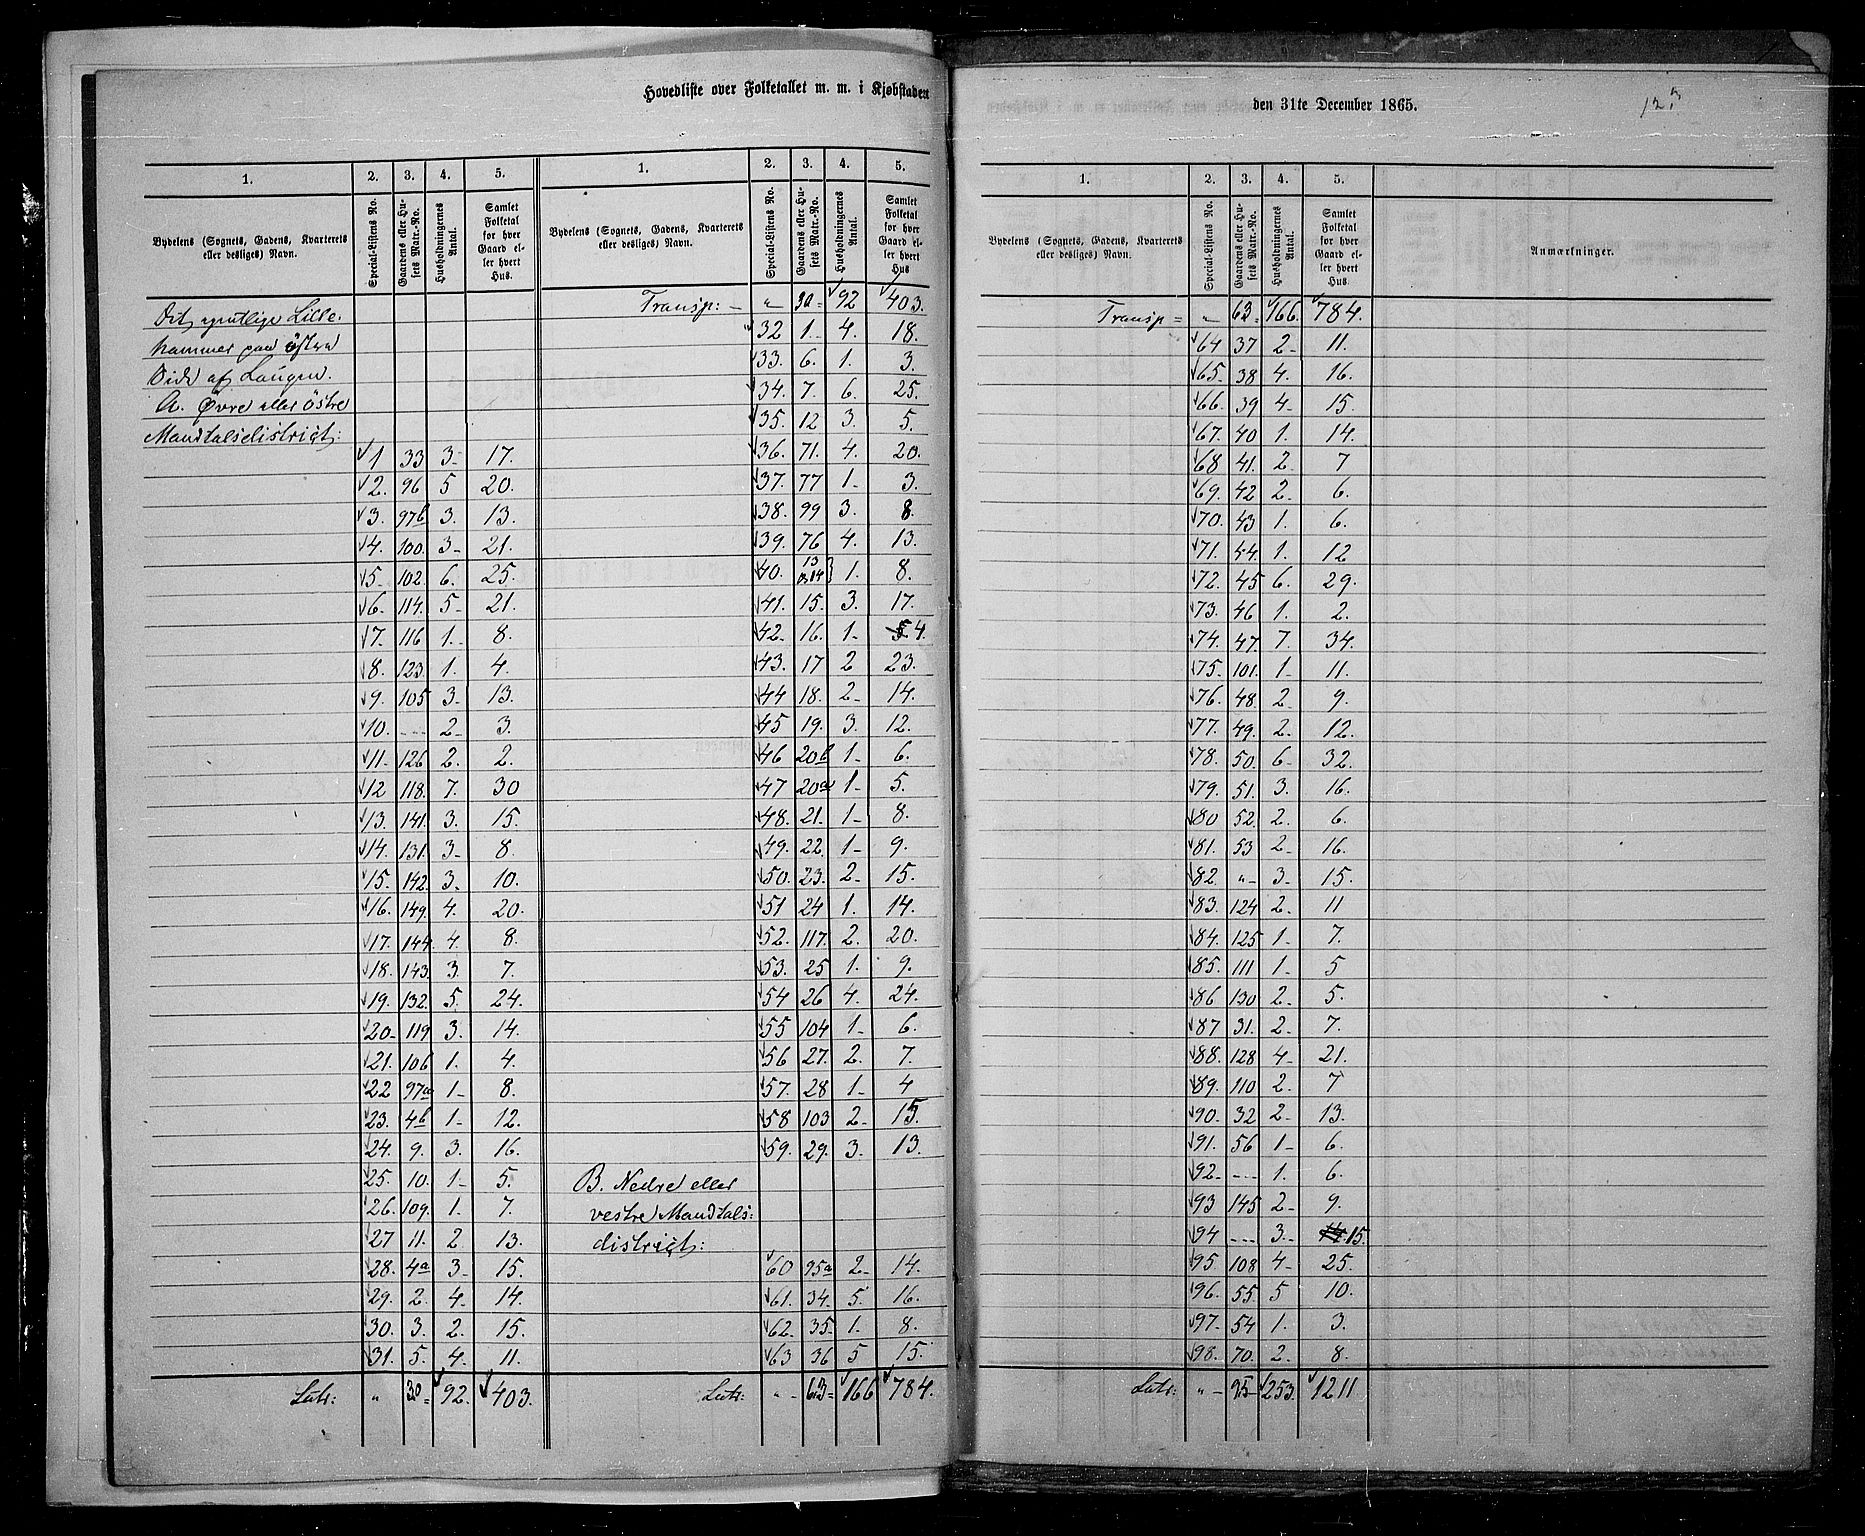 Hovedliste over Folketallet m. m. i Kjøbstaden
1. 2. 3. 4. 5. 1. 2. 3. 4. 5.
Bydelens (Sognets, Gadens, Kvarterets eller desliges) Navn. Special-Listens No. Gaardens eller Husets Matr.-No. Husholdningernes Antal. Samlet Folketal for hver Gaard eller hvert Hus.
Bydelens (Sognets, Gadens, Kvarterets eller desliges) Navn. Special-Listens No. Gaardens eller Husets Matr.-No. Husholdningernes Antal. Samlet Folketal for hver Gaard eller hvert Hus
Det egentlige Lille-
hammer paa østre
Side af Laugen.
A. Øvre eller østre
Mandtalsdistrigt:
1 33 3- 17.
2. 96 5 20.
3. 97b 3. 13.
4. 100. 3- 21.
5- 102. 6. 25.
6. 114. 5- 21.
7. 116 1.- 8.
8. 123. 1. 4.
9. 105 3. 13.
10. --- 2- 3.
11- 126 2. 2.
12 118. 7. 30
13. 141. 3. 15.
14. 131. 3- 8.
15. 142. 3. 10.
16. 149. 4. 20.
17. 144. 4. 8.
18. 143. 3. 7.
19. 132. 5. 24.
20- 119 3. 14.
21. 106 1. 4.
22 97a 1- 8.
23. 4b 1- 12.
24. 9. 3. 16.
25. 10. 1- 5.
26. 109. 1. 7.
27 11. 2. 13.
28. 4a 3- 15.
29. 2. 4- 14.
30. 3. 2. 15.
31. 5. 4- 11.
Latr: " 30= 92. 403.
Transp: - "- 30= 92 403.
32 1.- 4. 18.
33. 6. 1. 3.
34. 7. 6. 25.
35. 12 3. 5.
36. 71. 4. 20.
37. 77 1- 3.
38. 99 3. 8.
39. 76 4. 13.
40. 13 & 14 } 1. 8.
41. 15. 3. 17.
42. 16. 1- 5 4.
43. 17 2 23.
44 18. 2- 14.
45 19. 3. 12.
46 20b 1- 6.
47 20a 1- 5.
48. 21. 1- 8.
49. 22. 1- 9.
50. 23. 2- 15.
51 24 1. 14.
52. 117. 2. 20.
53. 25 1. 9.
54 26 4. 24.
55 104 1- 6.
56 27. 2. 7.
57. 28 1- 4
58 103 2- 15.
59. 29. 3. 13.
B. Nedre eller
vestre Mandtals:
distrigt:
60 95a 2- 14.
61. 34. 5. 16.
62. 35. 1. 8.
63 36 5 15.
Latr: "- 63= 166 784.
den 31te December 1865.
1. 2. 3. 4. 5.
Bydelens (Sognets, Gadens, Kvarterets eller desliges) Navn. Special-Listens No. Gaardens eller Husets Matr.-No. Husholdningernes Antal. Samlet Folketal for hver Gaard eller hvert Hus. Anmærkninger.
Transp = "- 63= 166. 784.
64 37 2- 11.
65. 38 4. 16.
66. 39 4- 15.
67. 40 1. 14.
68 41. 2. 7
69. 42 2. 6.
70. 43 1. 6.
71. 44. 1. 12
72. 45 6. 29.
73. 46 1. 2.
74. 47. 7. 34.
75. 101. 1- 11.
76. 48. 2- 9.
77. 49. 2. 12.
78. 50. 6- 32.
79. 51. 3. 16.
80 52. 2. 6.
81. 53 2- 16.
82. "- 3- 15.
83. 124 2. 11
84. 125 1- 7.
85. 111 1- 5
86 130 2- 5.
87 31. 2- 7.
88. 128 4- 21.
89. 110 2. 7
90. 32 2- 13.
91. 56 1- 6.
92- --- 1. 6.
93 145 2- 9.
94 --- 3- 14 15.
95 108 4- 25.
96. 55. 5 10.
97. 54 1. 3.
98. 70. 2. 8.
Latr: "- 95- 253. 1211